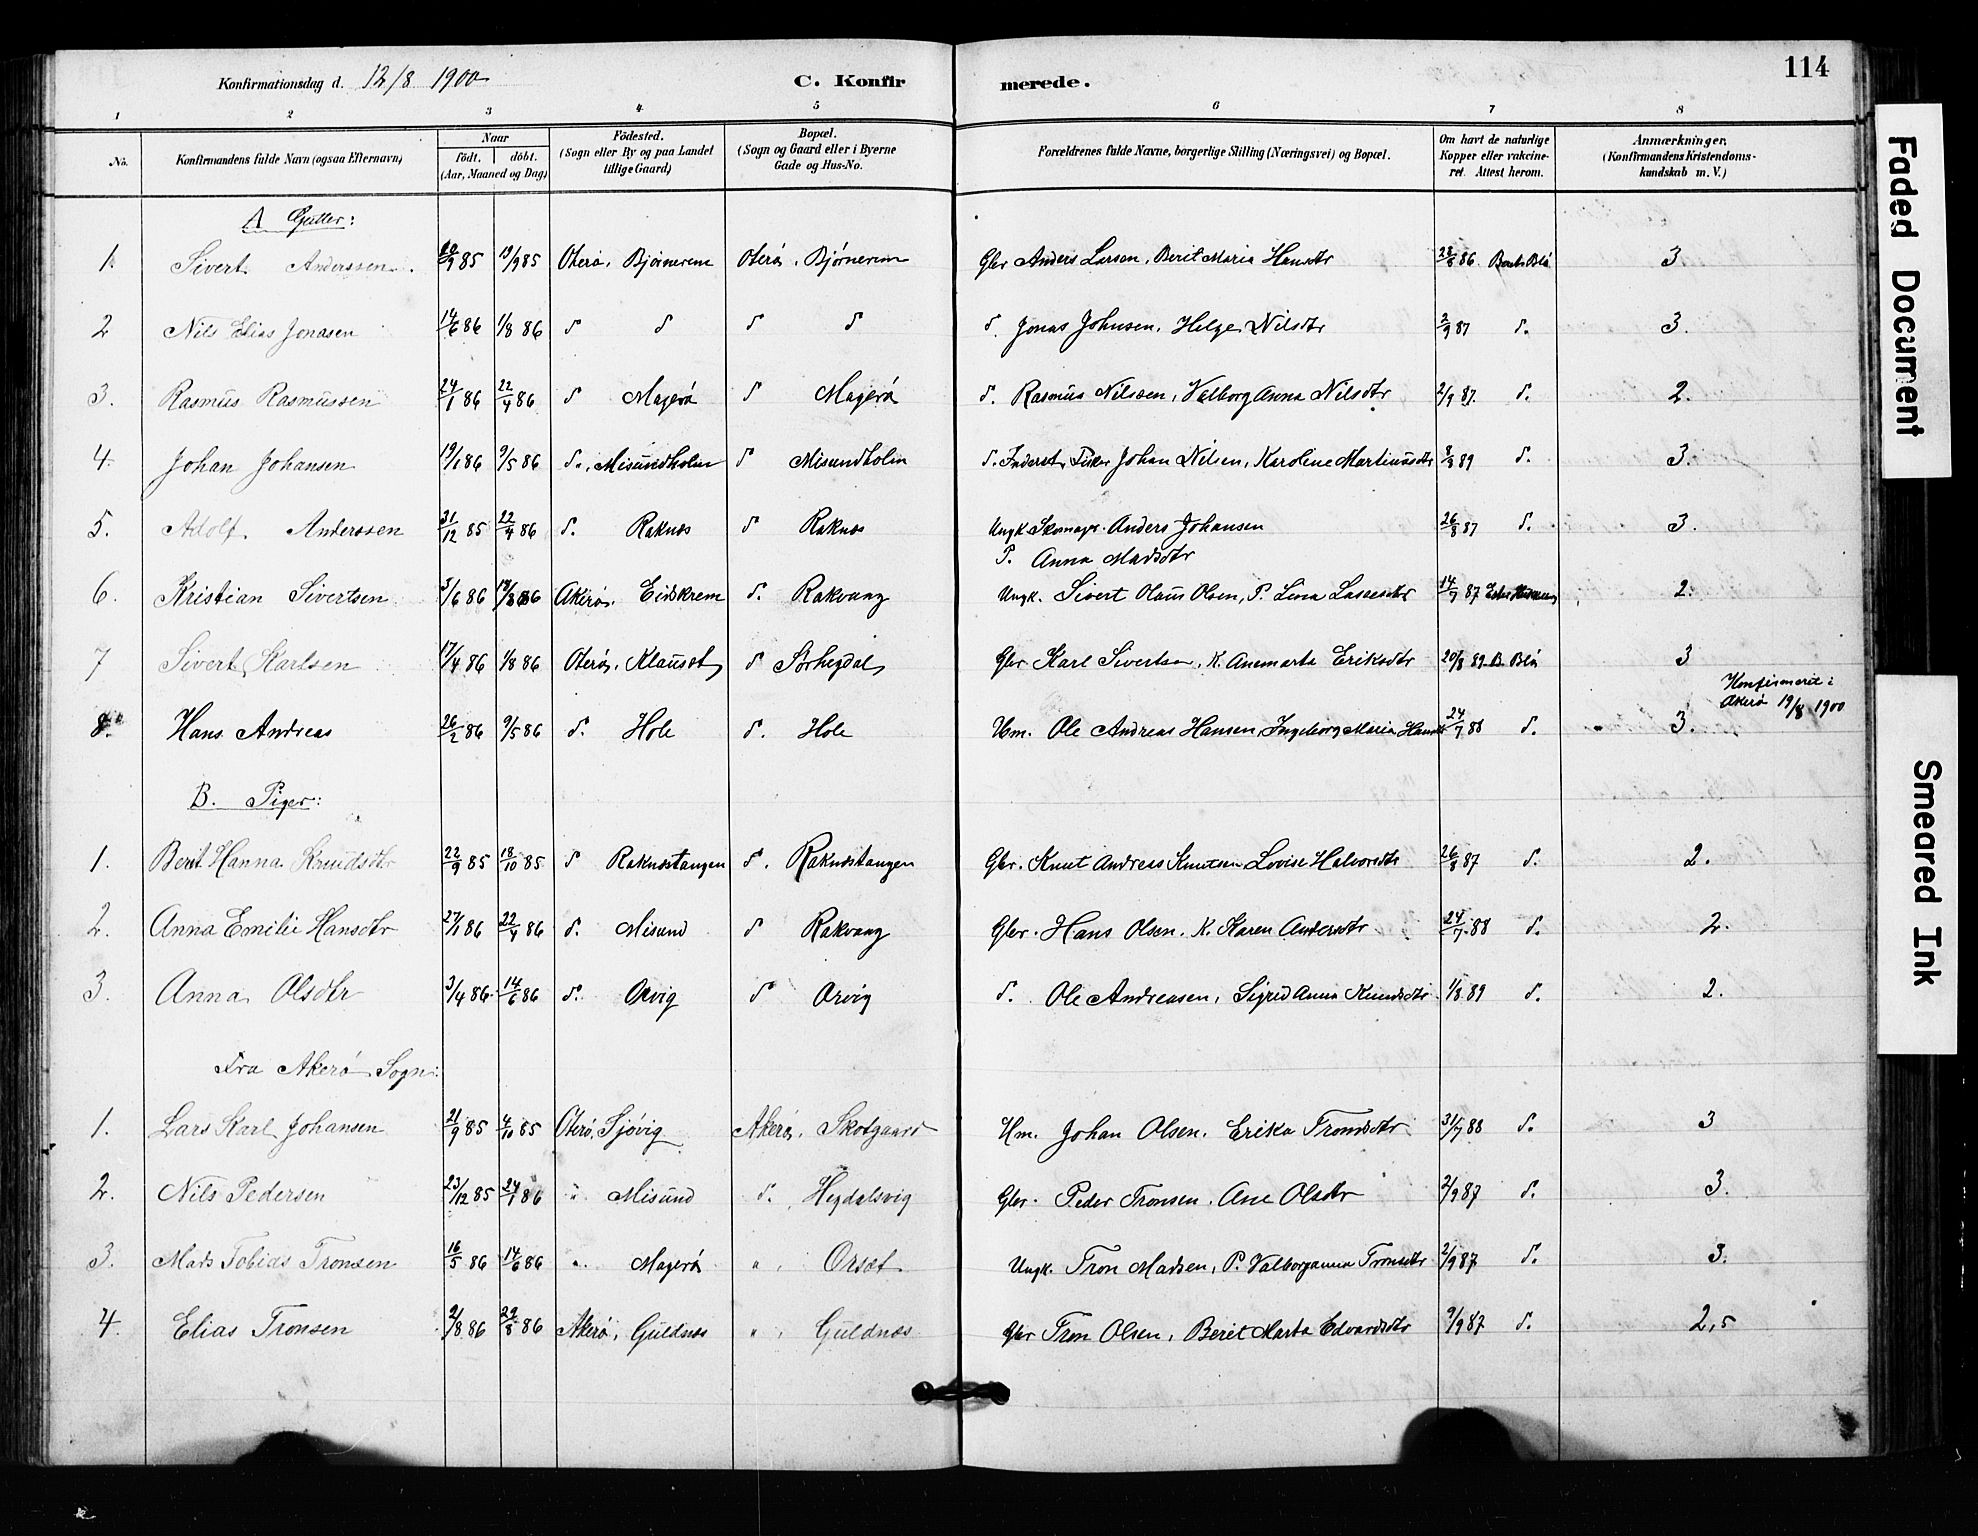 114
Konfirmationsdag d. 12/8 1900
C. Konfir merede.
1 2 3 4 5 6 7 8
No. Konfirmandens fulde Navn (ogsaa Efternavn) Naar født. døbt. (Aar, Maaned og Dag) Födested. (Sogn eller By og paa Landet tillige Gaard) Bopæl. (Sogn og Gaard eller i Byerne Gade og Hus-No. Forældrenes fulde Navne, borgerlige Stilling (Næringsvei) og Bopæl. Om havt de naturlige Kopper eller vakcineret. Attest herom. Anmærkninger, (Konfirmandens Kristendomskundskab m. V.)
A Gutter:
1. Sivert Anderssen 85 13/9 85 Oterø, Bjørnerem Oterø, Bjørnerem Gbr Anders Larsen, Berit Maria Hansdtr 86 3
2 Nils Elias Jonasen 14/6 86 1/8 86 d d d d d. Jonas Johnsen, Helge Nilsdtr 2/9 87 d. 3.
3. Rasmus Rasmussen 24/1 86 22/4 86 d Magerø d Magerø d. Rasmus Nilssen, Valborg Anna Nilsdtr 2/9 87. d. 2.
4. Johan Johansen 19/1 86 9/5 86 d., Misundholm d Misundholm d. Inderst, Fisker Johan Nilsen, Karoline Martinusdtr 89 d. 3.
5. Adolf Anderssen 31/12 85 22/4 86 d. Raknes d Raknes Ungk. Skomagr. Anders Johansen 26/8 87 d. 3.
P. Anna Madsdtr
6. Kristian Sivertsen 3/6 86 86 Akerø, Eidskrem d. Rakvaag Ungk. Sivert Olaus Olsen, P. Lina Lassesdtr 14/7 87 2.
7 Sivert Karlsen 17/4 86 1/8 86 Oterø, Klauset d Sørhegdal Gbr Karl Sivertsen, K. Anemarta Eriksdtr 20/8 89 B. Blå 3
Konfirmeret i
Akerø 19/8 1900
8. Hans Andreas 26/2 86 9/5 86 d. Hole d. Hole Hm. Ole Andreas Hansen, Ingeborg Maria Hansdtr 24/7 88 d. 3.
B. Piger:
1. Berit Hanna Knudsdtr 22/9 85 18/10 85 d Raknestangen d. Raknestangen Gbr. Knut Andreas Knutsen, Lovise Halvorsdtr 26/8 87 d. 2.
2. Anna Emilie Hansdtr 27/1 86 22/4 86 d. Misund d Rakvaag Gbr. Hans Olsen. K. Karen Andersdtr 24/7 88 d. 2.
3. Anna Olsdtr 3/4 86 14/6 86 d. Orvig d Orvig d. Ole Andreasen, Sigrid Anna Knudsdtr 1/8 89 d. 2.
Fra Akerø Sogn:
1. Lars Karl Johansen 21/9 85 4/10 85 Oterø, Sjøvig Akerø, Skotgaard Hm. Johan Olsen, Erika Tronsdtr 31/7 88 d. 3
2. Nils Pedersen 23/12 85 24/1 86 " Misund d. Hegdalsvig Gbr. Peder Tronsen, Ane Olsdtr 2/9 87 d. 3.
3. Mads Tobias Tronsen 16/5 86 14/6 86 " Magerø " Orset Ungk. Tron Madsen, P. Valborganna Tronsdtr 2/9 87 d. 3.
4. Elias Tronsen 2/8 86 29/8 86 Akerø, Guldnes " Guldnes Gbr Tron Olsen, Berit Marta Edvardsdtr 9/9 87 d. 2,5
Faded Document
Smeared Ink